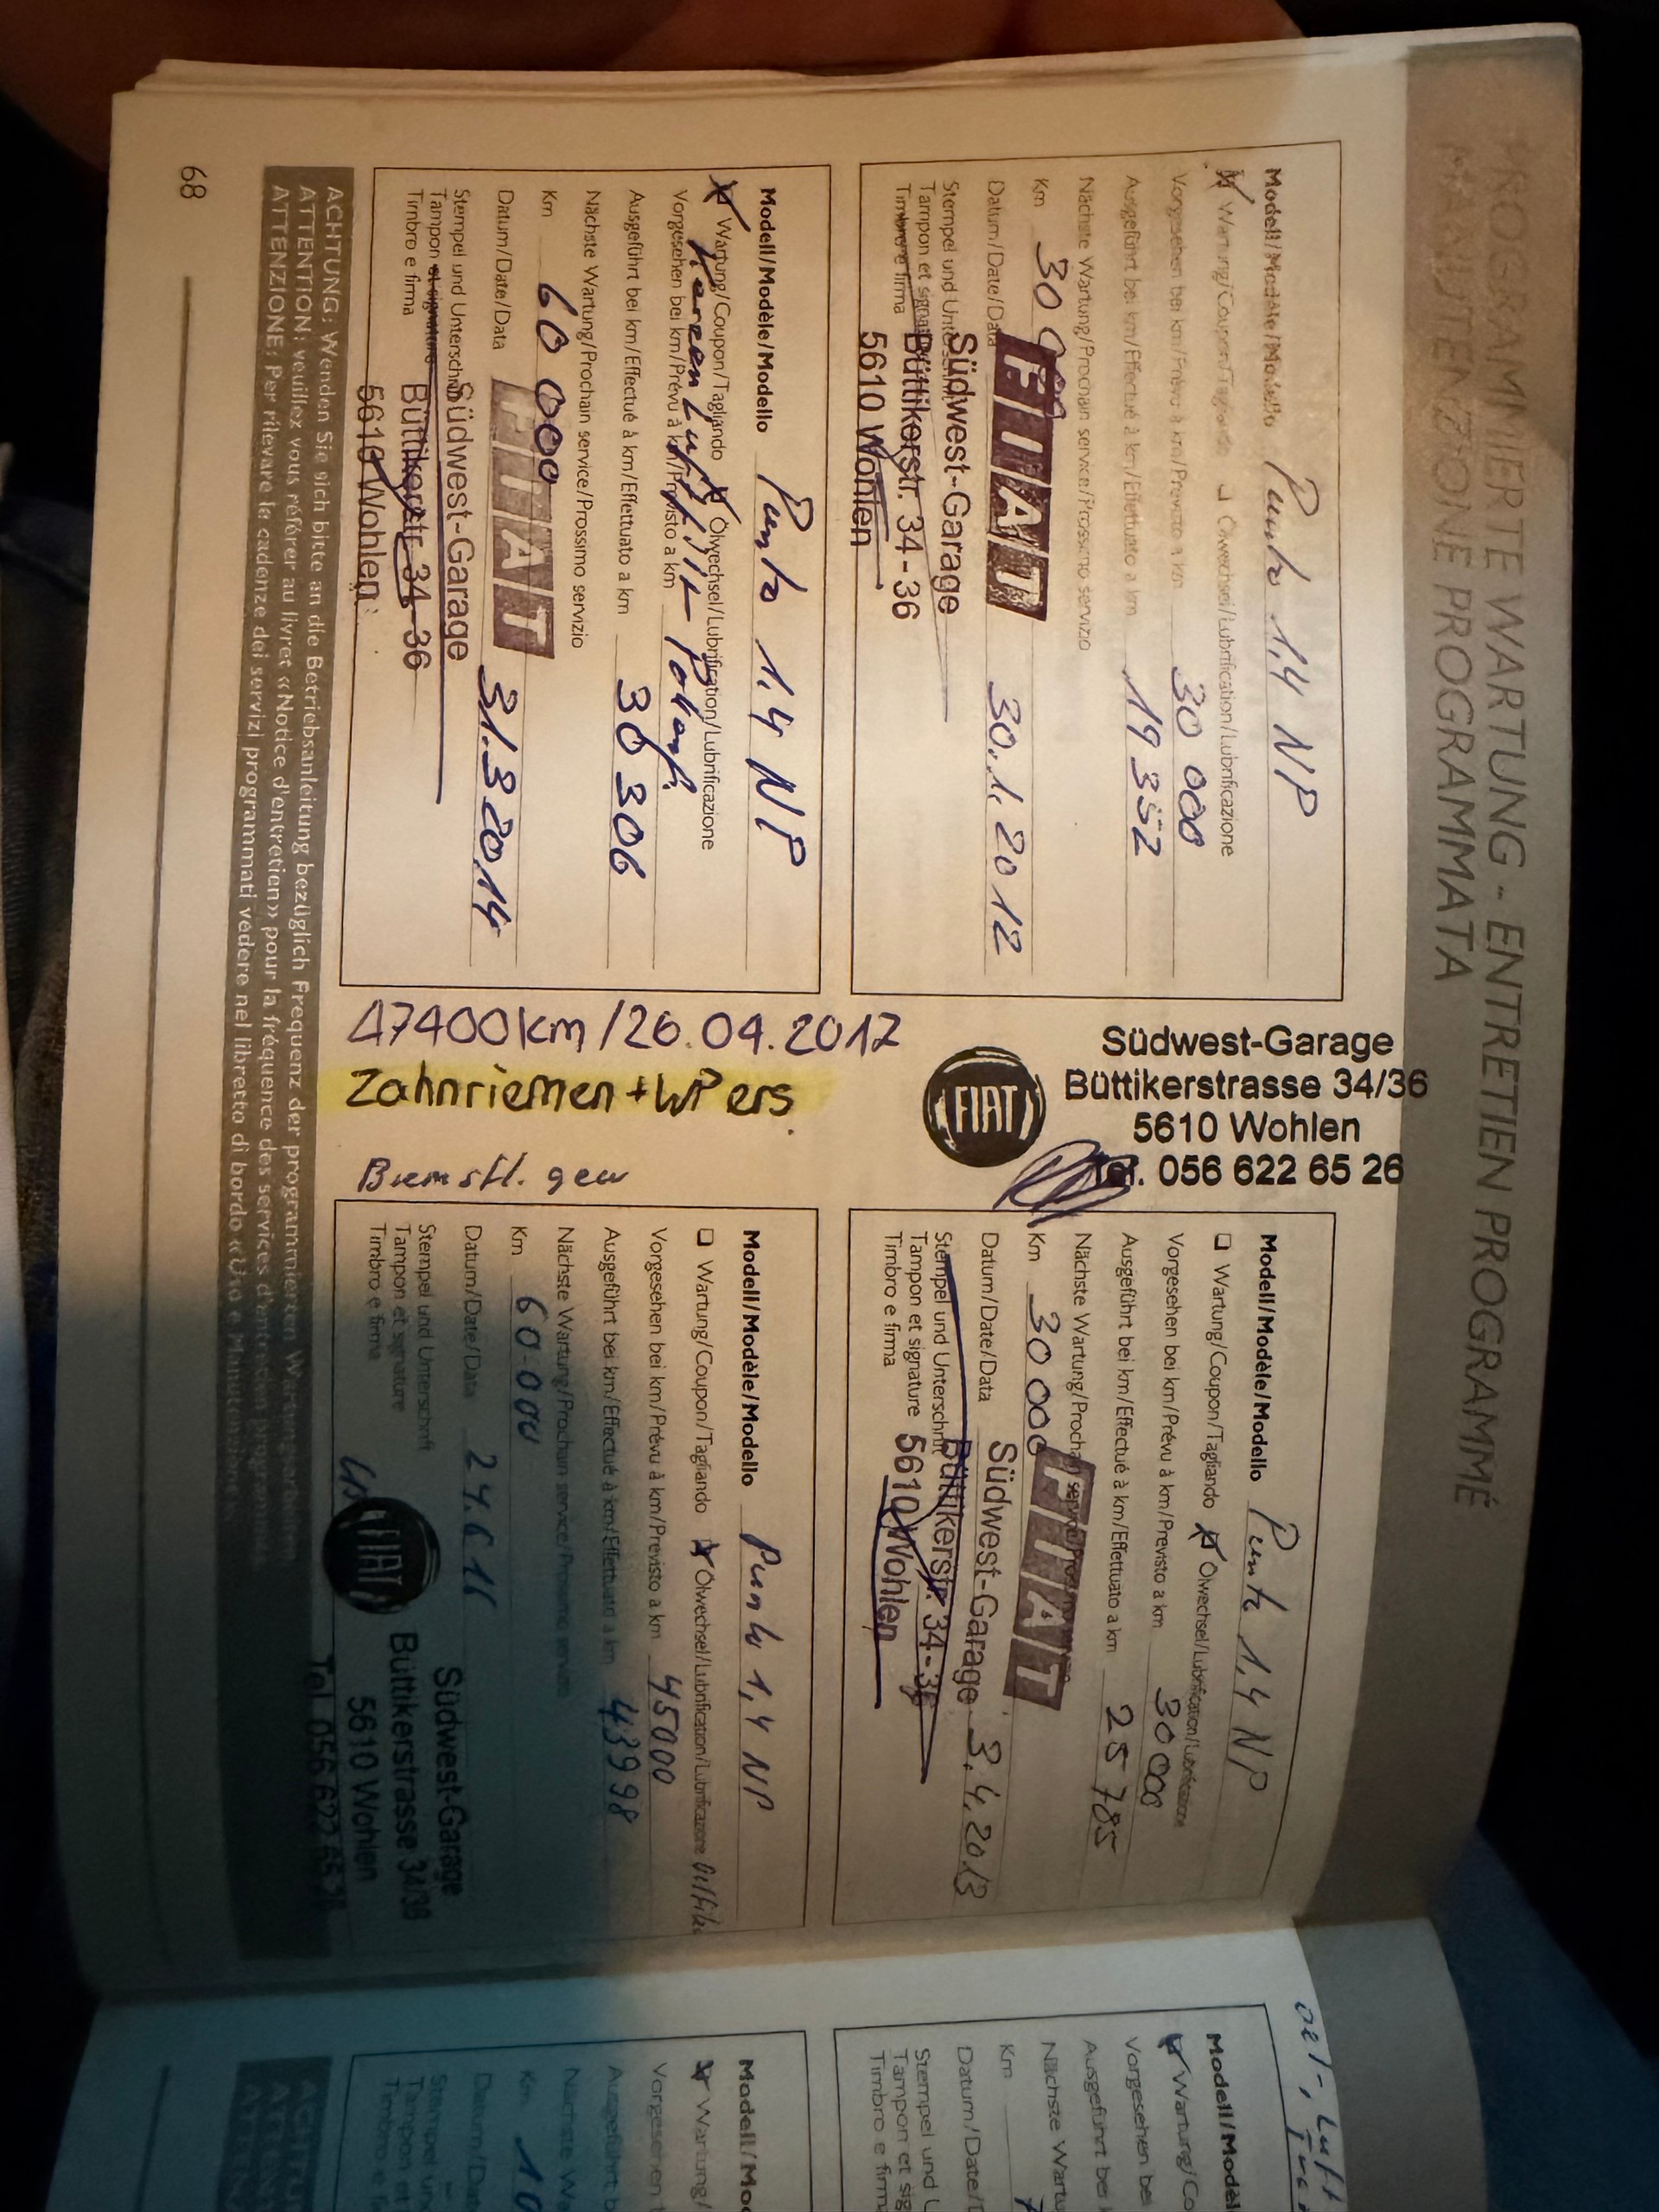 PROGRAMMIERTE WARTUNG - ENTRETIEN PROGRAMMÉ
MANUTENZIONE PROGRAMMATA
Modell/Modèle/Modello Punto 1,4 NP
Wartung/Coupon/Tagliando Ölwechsel/Lubrification/Lubrificazione
Vorgesehen bei km/Prévu à km/Previsto a km 30 000
Ausgeführt bei km/Effectué à km/Effettuato a km 19 352
Nächste Wartung/Prochain service/Prossimo servizio
Km 30 000
FIAT
Datum/Date/Data 30.1.2012
Stempel und Unterschrift
Tampon et signature
Timbro e firma
Südwest-Garage
Büttikerstr. 34 - 36
5610 Wohlen
Modell/Modèle/Modello Punto 1.4 NP
Wartung/Coupon/Tagliando Ölwechsel/Lubrification/Lubrificazione
Vorgesehen bei km/Prévu à km/Previsto a km
Luftfilt Pollenf.
Ausgeführt bei km/Effectué à km/Effettuato a km 30 306
Nächste Wartung/Prochain service/Prossimo servizio
Km 60 000
FIAT
Datum/Date/Data 31.3.2014
Stempel und Unterschrift
Tampon et signature
Timbro e firma
Südwest-Garage
Büttikerstr. 34 - 36
5610 Wohlen
Südwest-Garage
Büttikerstrasse 34/36
5610 Wohlen
Tel. 056 622 65 26
FIAT
47400km/26.04.2017
Zahnriemen+WP ers.
Bremsfl. gew
Modell/Modèle/Modello Punto 1,4 NP
Wartung/Coupon/Tagliando Ölwechsel/Lubrification/Lubrificazione
Vorgesehen bei km/Prévu à km/Previsto a km 30 000
Ausgeführt bei km/Effectué à km/Effettuato a km 25 785
Nächste Wartung/Prochain service/Prossimo servizio
Km 30 000
FIAT
Datum/Date/Data 3.4.2013
Stempel und Unterschrift
Tampon et signature
Timbro e firma
Südwest-Garage
Büttikerstr. 34 - 36
5610 Wohlen
Modell/Modèle/Modello Punto 1,4 NP
Wartung/Coupon/Tagliando Ölwechsel/Lubrification/Lubrificazione
Vorgesehen bei km/Prévu à km/Previsto a km 45000
Ausgeführt bei km/Effectué à km/Effettuato a km 43998
Nächste Wartung/Prochain service/Prossimo servizio
Km 60.000
Datum/Date/Data 24.6
Stempel und Unterschrift
Tampon et signature
Timbro e firma
FIAT
Südwest-Garage
Büttikerstrasse 34/36
5610 Wohlen
Tel. 056 622 65
ACHTUNG: Wenden Sie sich bitte an die Betriebsanleitung bezüglich Frequenz der programmierten
ATTENTION: veuillez vous référer au livret «Notice d'entretien» pour la fréquence des services d'entretien
ATTENZIONE: Per rilevare le cadenze dei servizi programmati vedere nel libretto di bordo «Uso e
68
Oel-, Luft
Wartung/Co
Vorgesehen bei
Ausgeführt bei
Nächste Wartu
Km 7
Datum/Date/
Stempel und
Tampon et sig
Timbro e firm
Wartung/
Vorgesehen
Km 10